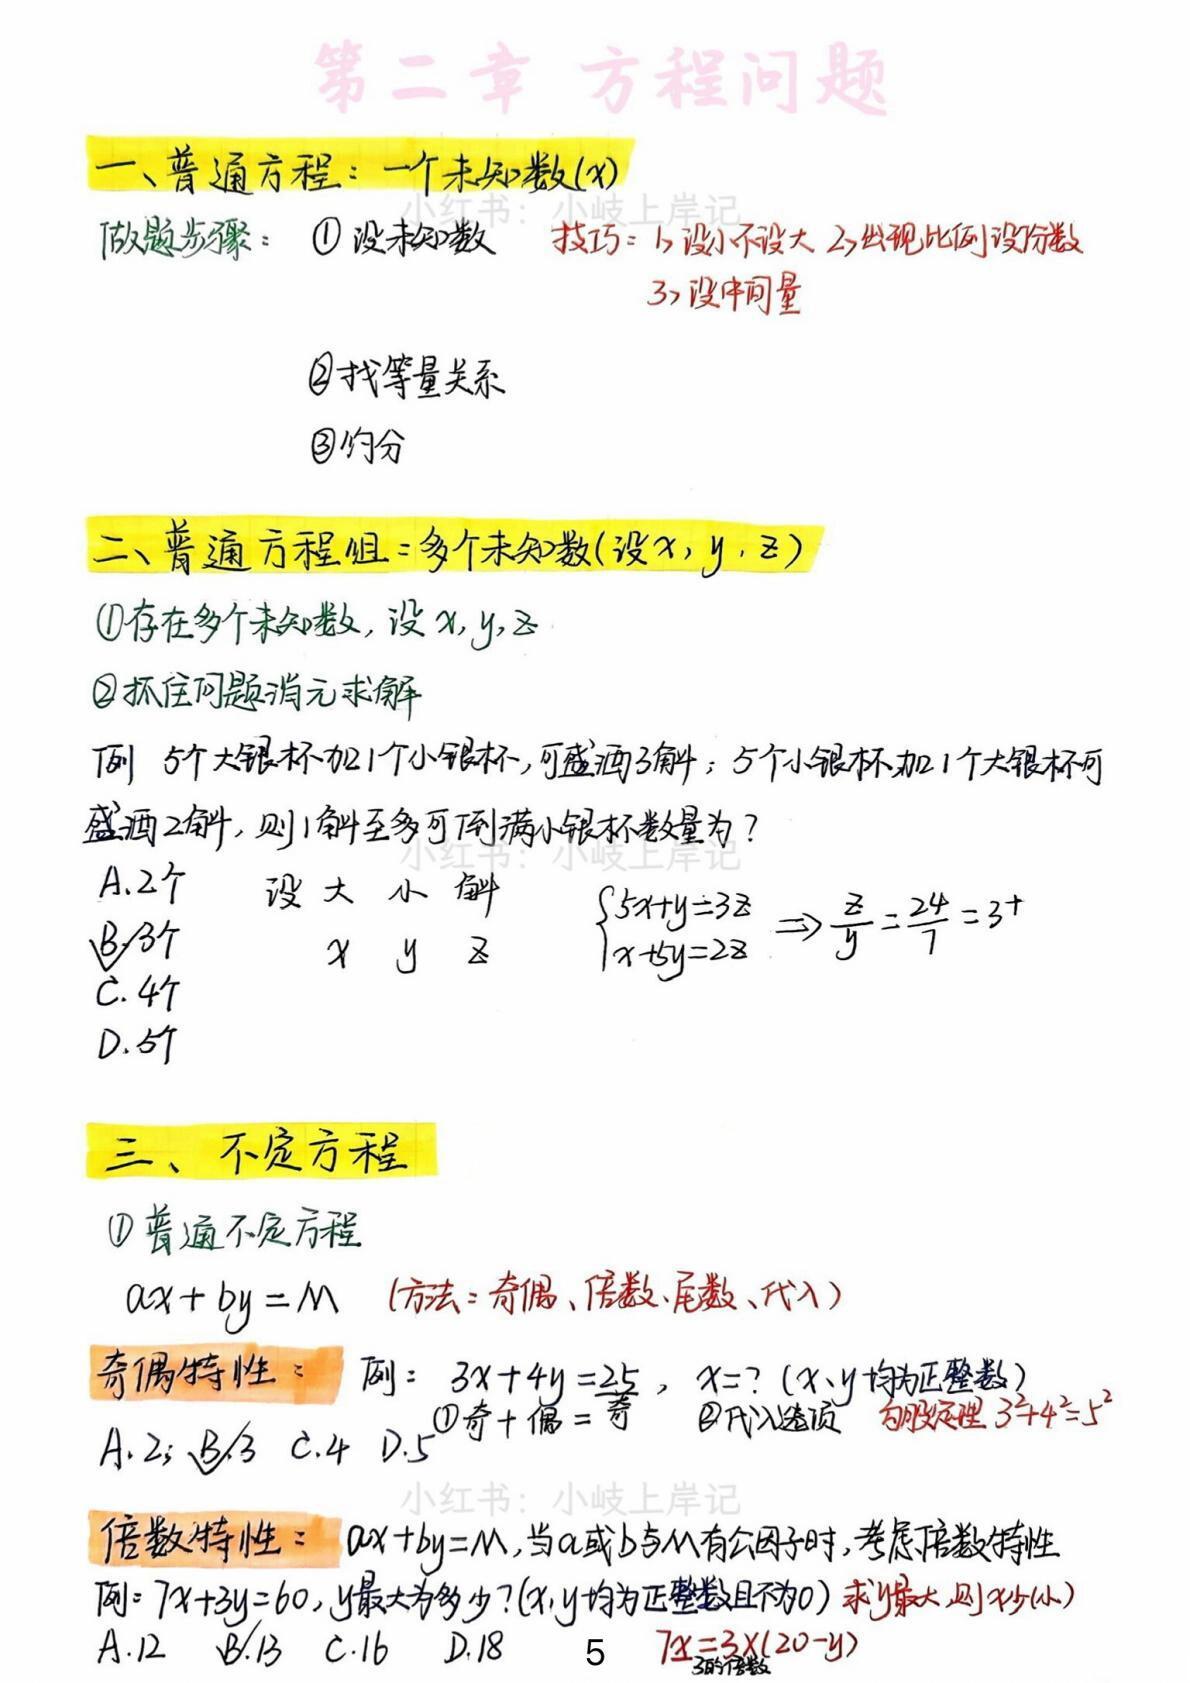 第二章 方程问题
一、普通方程：一个未知数(x)
小红书：小岐上岸记
做题步骤：① 设未知数 技巧：1、设小不设大 2、出现比例设份数
3、设中间量
②找等量关系
③约分
二、普通方程组：多个未知数(设x，y，z)
①存在多个未知数，设x，y，z
②抓住问题消元求解
例 5个大银杯加1个小银杯，可盛酒3斛；5个小银杯加1个大银杯可
盛酒2斛，则1斛至多可倒满小银杯数量为？
小红书：小岐上岸记
A.2个 设 大 小 斛 {5x+y=3z ⇒ z/y = 24/7 = 3⁺
B.3个 x y z x+5y=2z
C.4个
D.5个
三、不定方程
①普通不定方程
ax+by=M (方法：奇偶、倍数、尾数、代入)
奇偶特性： 例： 3x+4y=25， x=？(x、y均为正整数)
①奇+偶=奇 ②代入选项 勾股定理 3²+4²=5²
A.2； B.3 C.4 D.5
小红书：小岐上岸记
倍数特性： ax+by=M，当a或b与M有公因子时，考虑倍数特性
例：7x+3y=60，y最大为多少？(x，y均为正整数且不为0) 求y最大，则x少(小)
A.12 B.13 C.16 D.18 5 7x=3×(20-y)
3的倍数